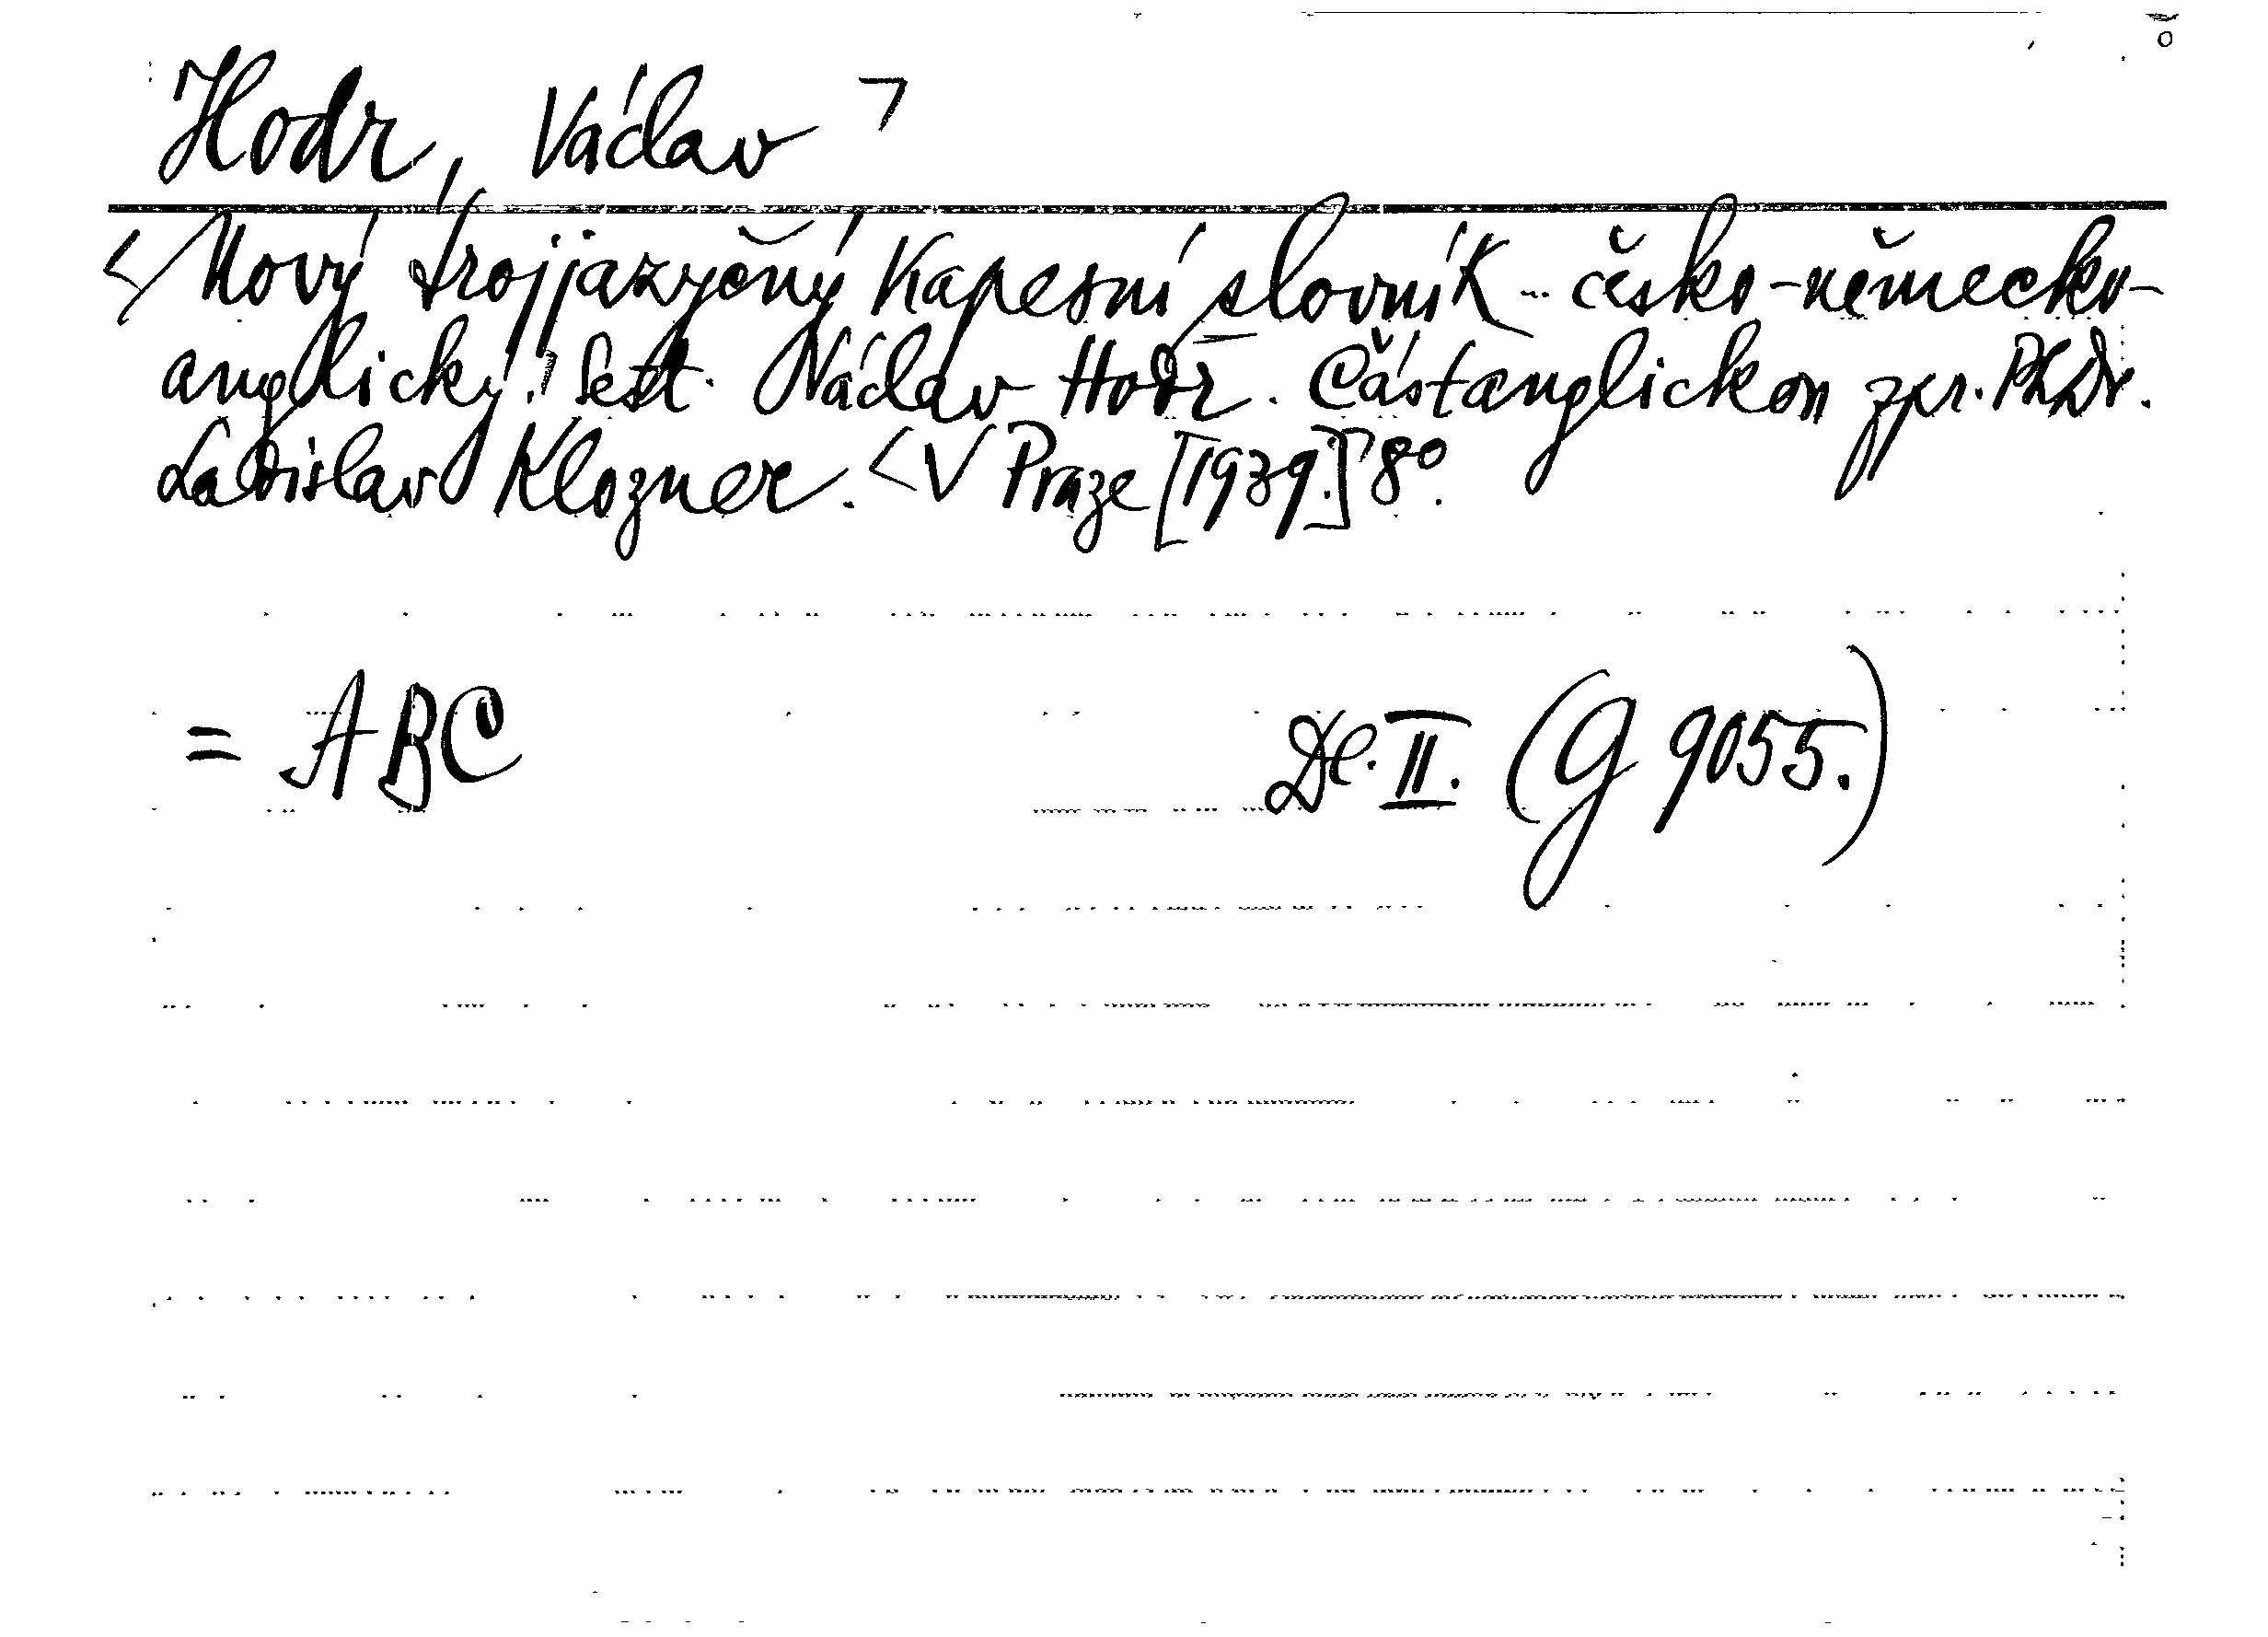 Hodr, Václav
Nový trojjazyčný kapesní slovník česko-německo-
anglický. Sest. Václav Hodr. Část anglickou zpr. PhDr.
Ladislav Klozner. V Praze [1939.] 8°.
= ABC Dl. II. (G 9055.)